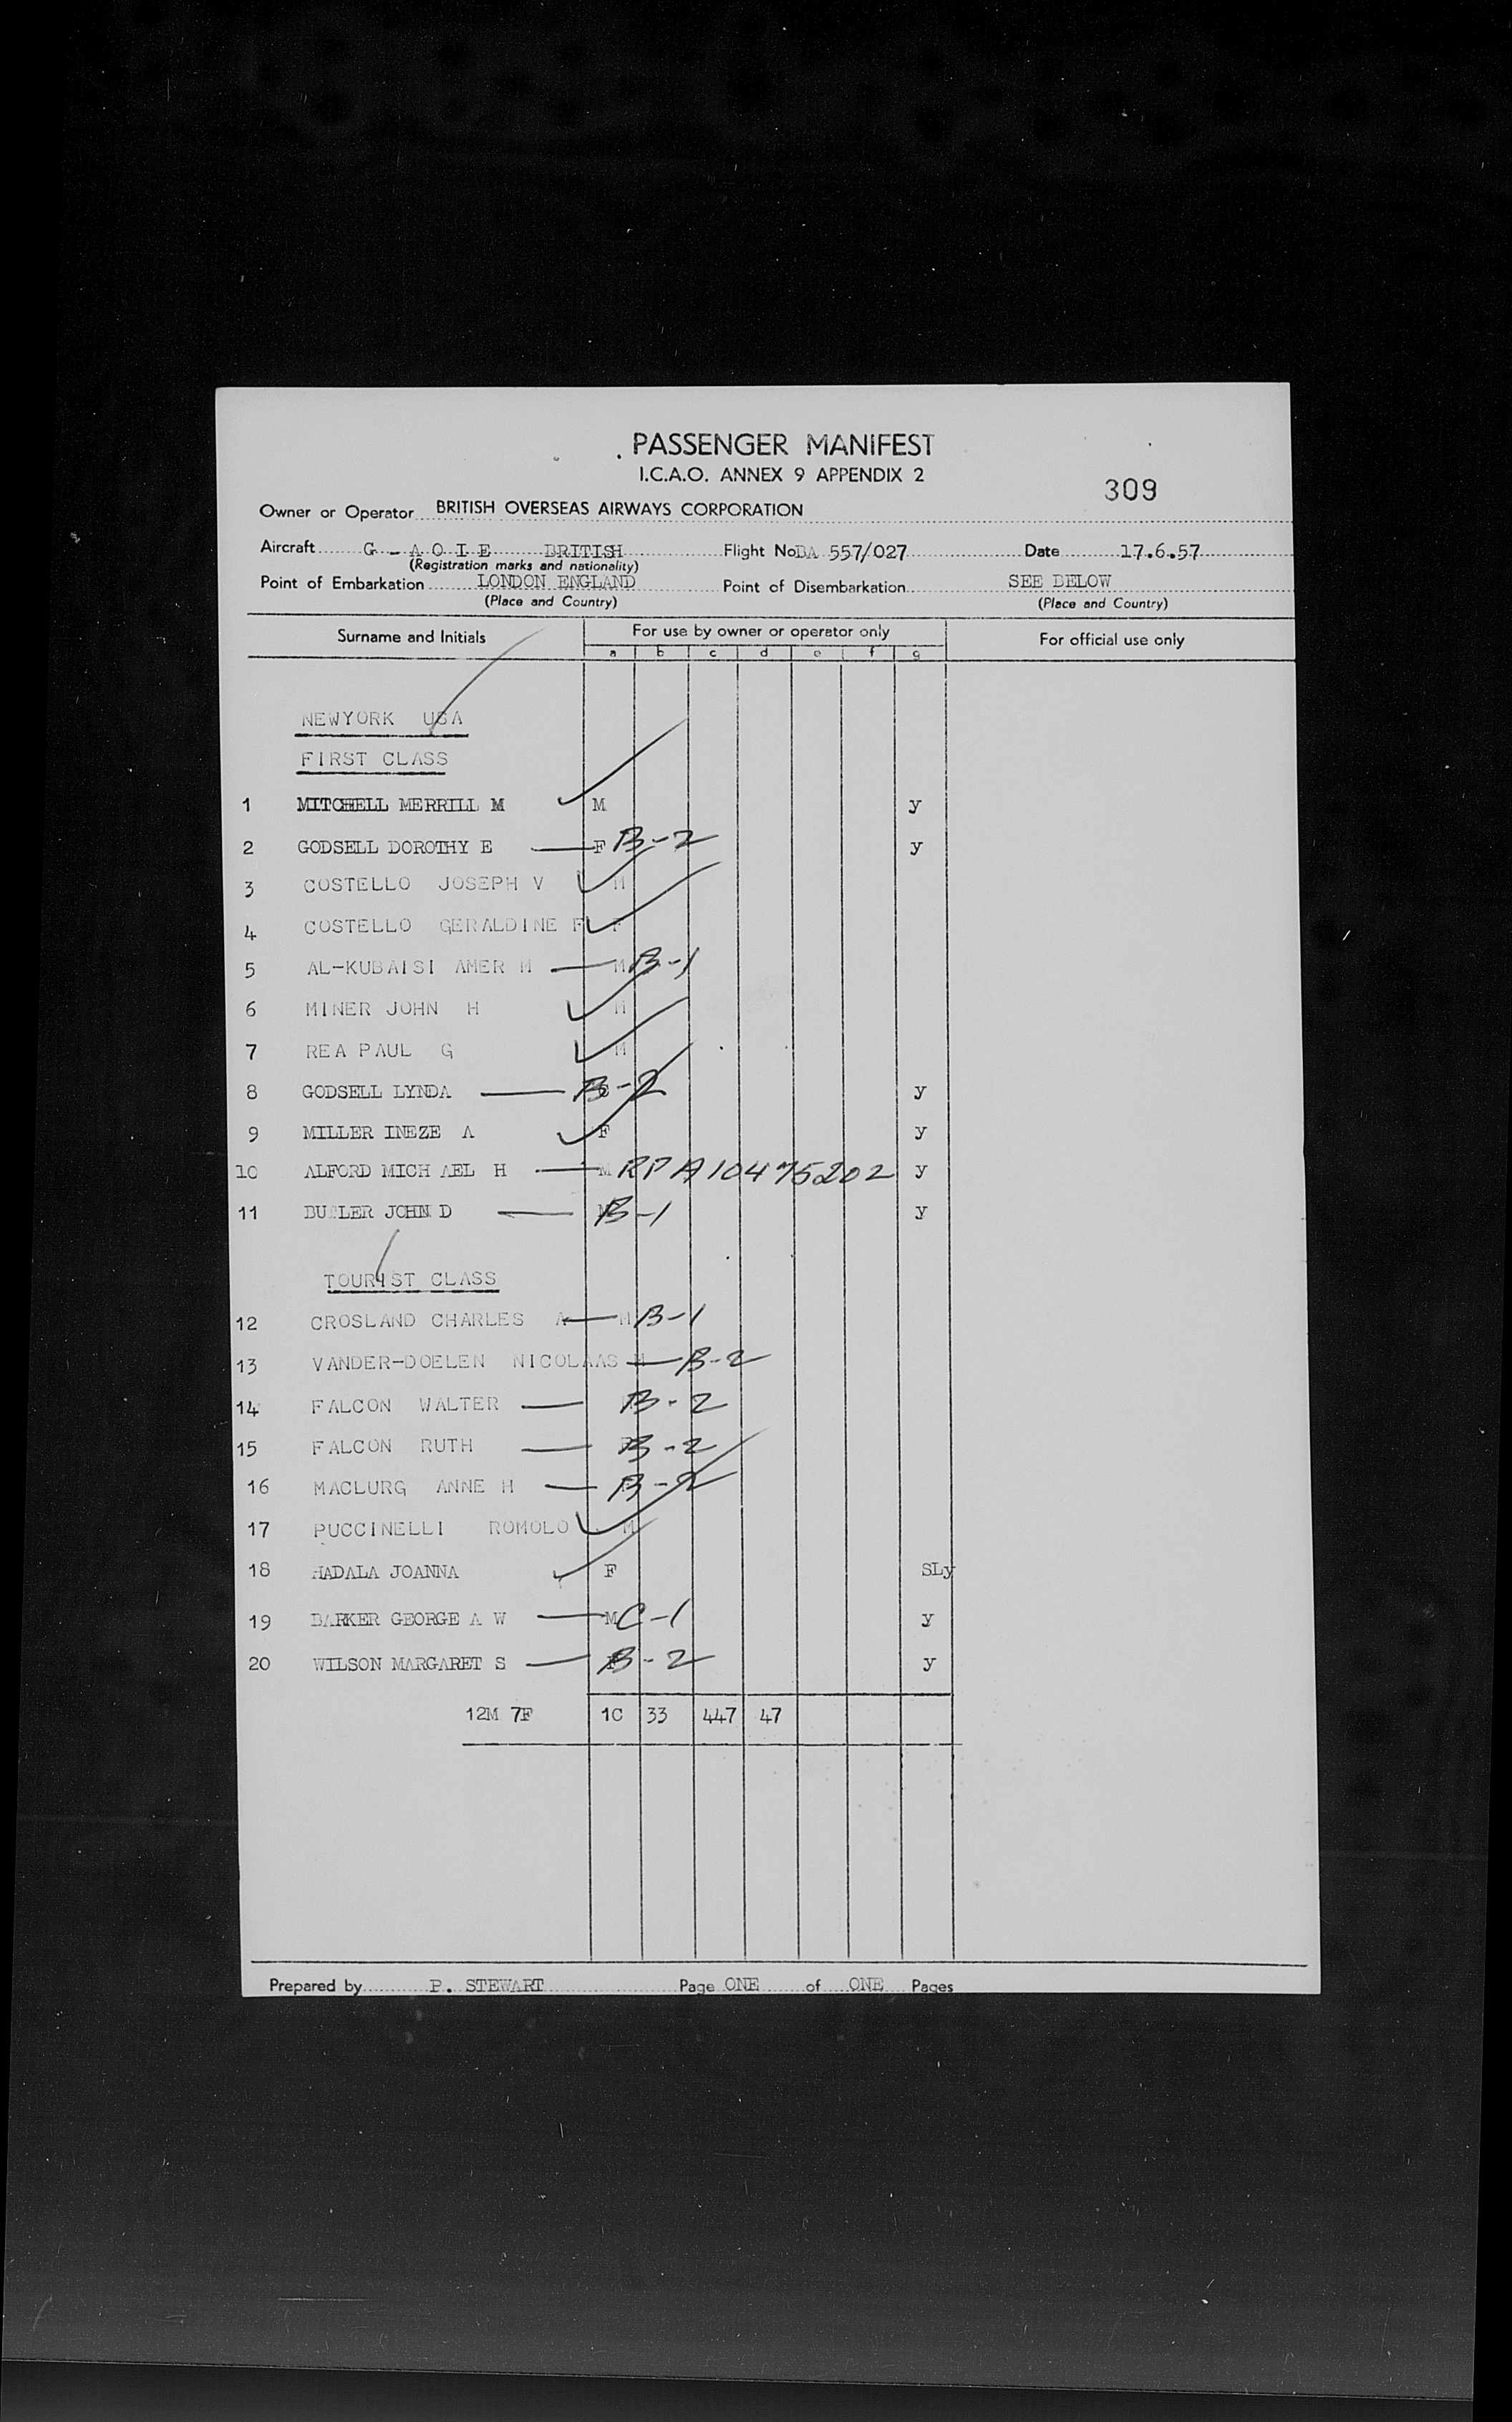 PASSENGER MANIFEST
I.C.A.O. ANNEX 9 APPENDIX 2
309
Owner or Operator BRITISH OVERSEAS AIRWAYS CORPORATION
Aircraft G - A O I E BRITISH Flight No BA 557/027 Date 17.6.57
(Registration marks and nationality)
Point of Embarkation LONDON ENGLAND Point of Disembarkation SEE BELOW
(Place and Country) (Place and Country)
Surname and Initials For use by owner or operator only For official use only
a b c d e f g
NEWYORK USA
FIRST CLASS
1 MITCHELL MERRILL M M y
2 GODSELL DOROTHY E F B-2 y
3 COSTELLO JOSEPH V M
4 COSTELLO GERALDINE F F
5 AL-KUBAISI AMER M M B-1
6 MINER JOHN H M
7 REA PAUL G M
8 GODSELL LYNDA B-2 y
9 MILLER INEZE A F y
10 ALFORD MICHAEL H M RP A10475202 y
11 JOHN D B-1 y
TOURIST CLASS
12 CROSLAND CHARLES A M B-1
13 VANDER-DOELEN NICOLAAS M B-2
14 FALCON WALTER B-2
15 FALCON RUTH B-2
16 MACLURG ANNE H B-2
17 PUCCINELLI ROMOLO M
18 JOANNA F SLy
19 BARKER GEORGE A W M C-1 y
20 WILSON MARGARET S B-2 y
12M 7F 1C 33 447 47
Prepared by P. STEWART Page ONE of ONE Pages